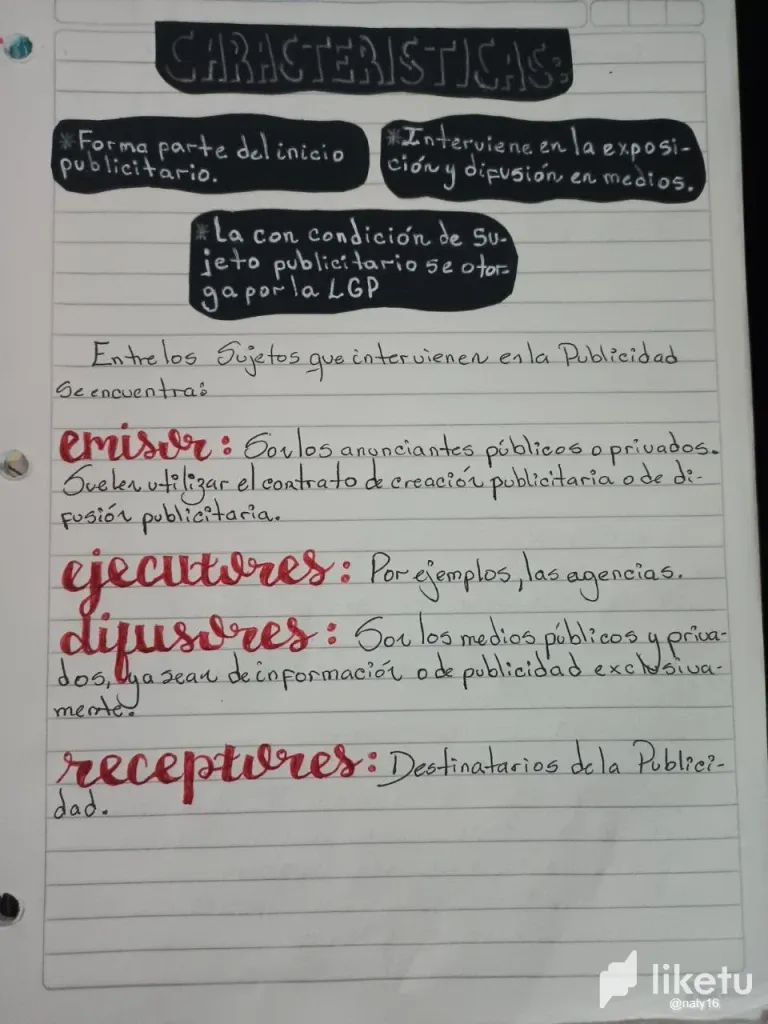 CARACTERISTICAS:
*Forma parte del inicio
publicitario.
*Interviene en la exposi-
ción y difusión en medios.
*La con condición de Su-
jeto publicitario se otor-
ga por la LGP
Entre los Sujetos que intervienen en la Publicidad
se encuentra:
emisor: Son los anunciantes públicos o privados.
Suelen utilizar el contrato de creación publicitaria o de di-
fusión publicitaria.
ejecutores: Por ejemplos, las agencias.
difusores: Son los medios públicos y priva-
dos, ya sean de información o de publicidad exclusiva-
mente.
receptores: Destinatarios de la Publici-
dad.
liketu
@naty16